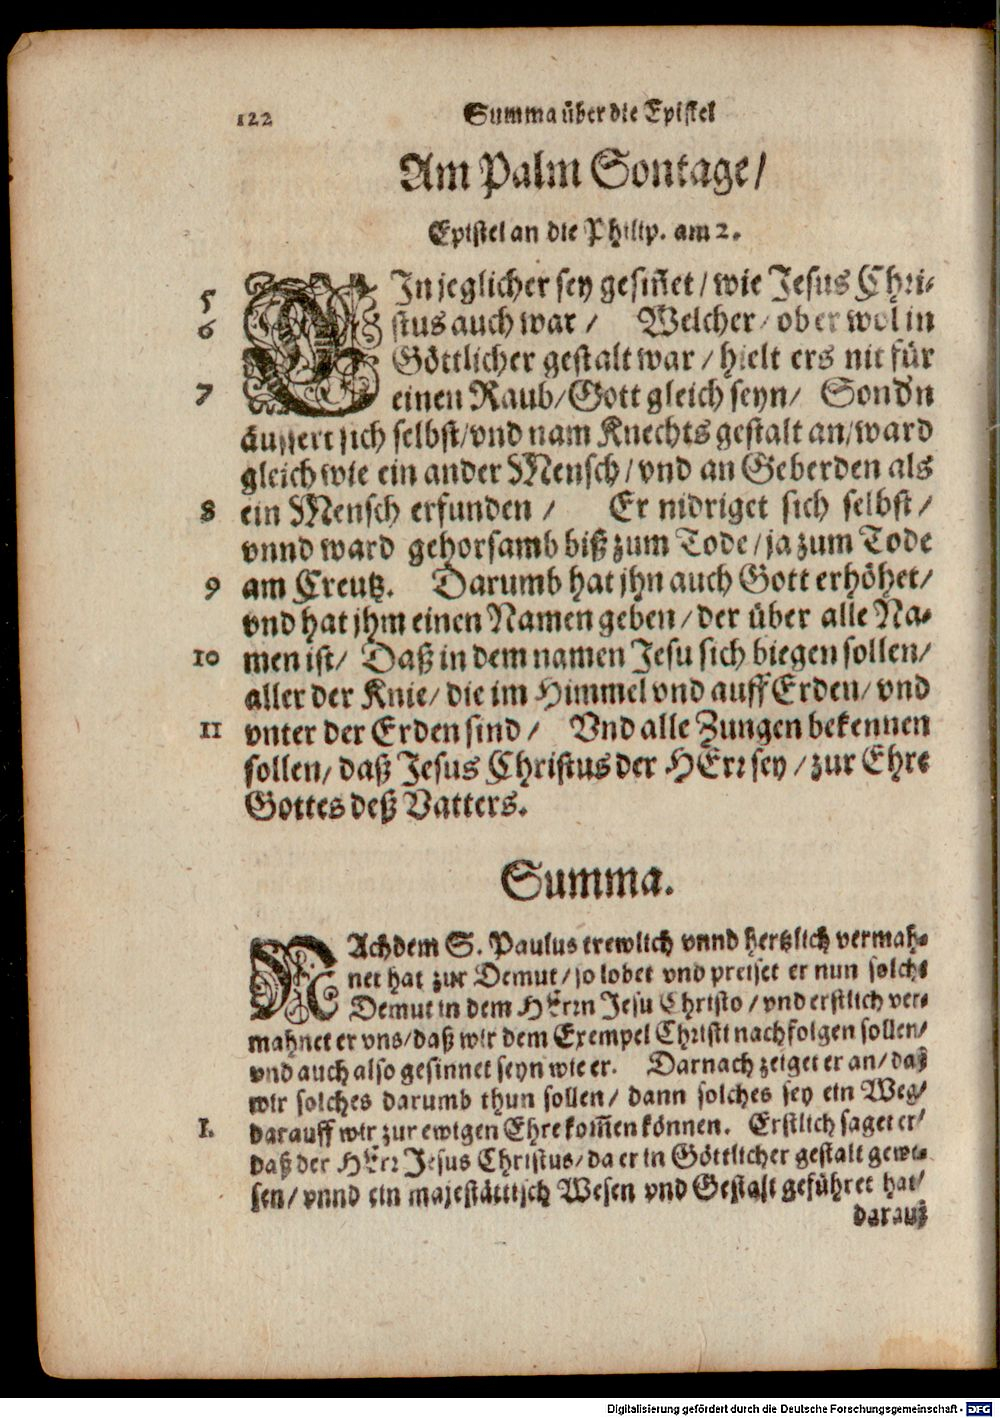 122 Summa über die Epistel
Am Palm Sontage/
Epistel an die Philip. am 2.
5 EIn jeglicher sey gesiñet / wie Jesus Chri-
6 stus auch war / Welcher / ob er wol in
Göttlicher gestalt war / hielt ers nit für
7 einen Raub / Gott gleich seyn / Sondn
äussert sich selbst / vnd nam Knechts gestalt an / ward
gleich wie ein ander Mensch / vnd an Geberden als
8 ein Mensch erfunden / Er nidriget sich selbst /
vnnd ward gehorsamb biß zum Tode / ja zum Tode
9 am Creutz. Darumb hat jhn auch Gott erhöhet /
vnd hat jhm einen Namen geben / der über alle Na-
10 men ist / Daß in dem namen Jesu sich biegen sollen /
aller der Knie / die im Himmel vnd auff Erden / vnd
11 vnter der Erden sind / Vnd alle Zungen bekennen
sollen / daß Jesus Christus der HErr sey / zur Ehre
Gottes deß Vatters.
Summa.
NAchdem S. Paulus trewlich vnnd hertzlich vermah-
net hat zur Demut / so lobet vnd preiset er nun solche
Demut in dem HErrn Jesu Christo / vnd erstlich ver-
mahnet er vns / daß wir dem Exempel Christi nachfolgen sollen /
vnd auch also gesinnet seyn wie er. Darnach zeiget er an / daß
wir solches darumb thun sollen / dann solches sey ein Weg /
1. darauff wir zur ewigen Ehre kom̃en können. Erstlich saget er /
daß der HErr Jesus Christus / da er in Göttlicher gestalt gewe-
sen / vnnd ein majestättisch Wesen vnd Gestalt geführet hat /
darauß
Digitalisierung gefördert durch die Deutsche Forschungsgemeinschaft - DFG